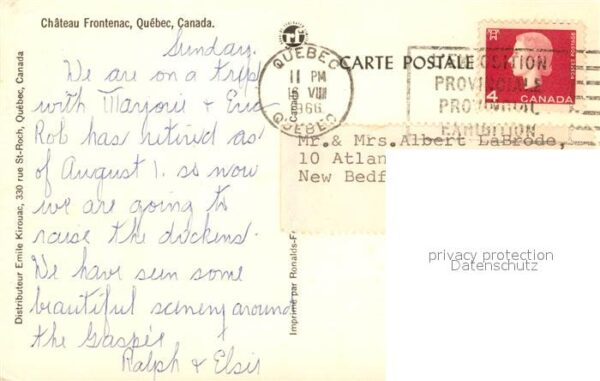 Château Frontenac, Québec, Canada.
Sunday.
We are on a trip
with Marjorie & Eric
Rob has retired as
of August 1. so now
we are going to
raise the dickens.
We have seen some
beautiful scenery around
the Gaspé
Ralph & Elsie
Distributeur Emile Kirouac, 330 rue St-Roch, Québec, Canada
Imprimé par Ronalds-F
Canada
CARTE POSTALE
QUÉBEC
11 PM
16 VIII
1966
QUÉBEC
POSITION
PROVINCIALE
PROVINCIAL
EXHIBITION
4 CANADA
POSTAGE POSTES
Mr.& Mrs.Albert LaBrode,
10 Atlan
New Bedf
privacy protection
Datenschutz